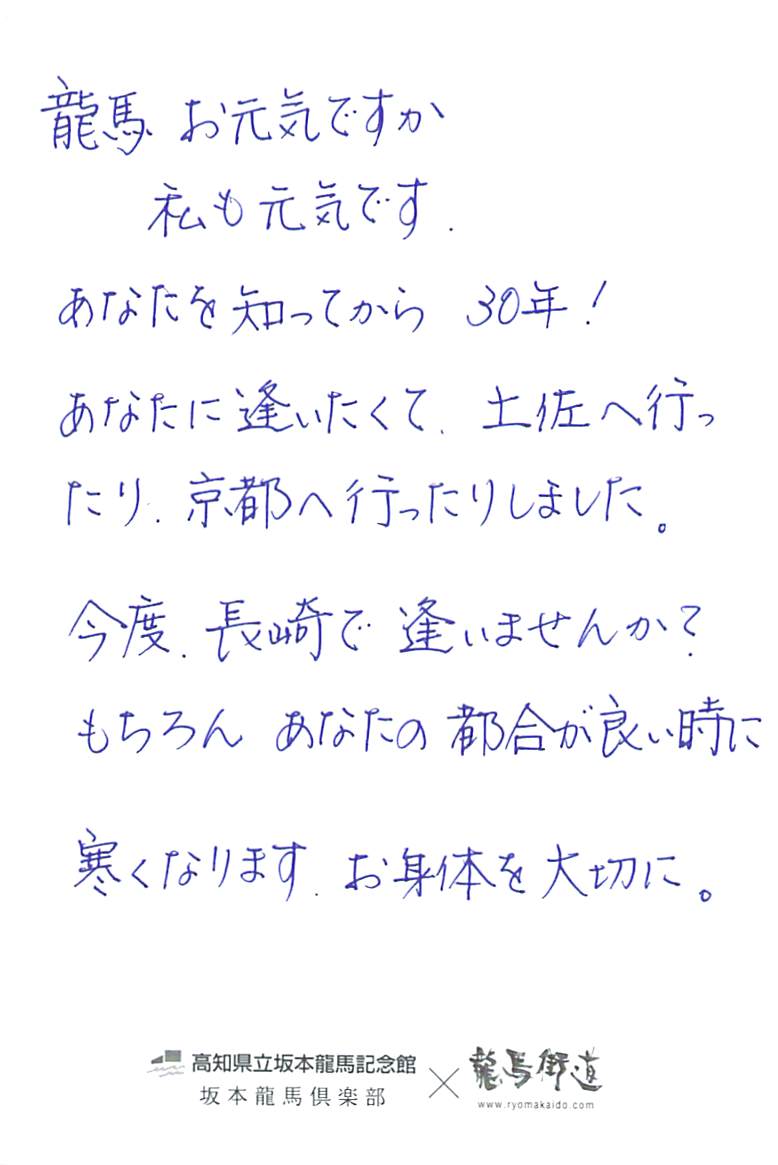 龍馬 お元気ですか
私も元気です.
あなたを知ってから 30年!
あなたに逢いたくて、土佐へ行っ
たり、京都へ行ったりしました。
今度、長崎で逢いませんか?
もちろん あなたの都合が良い時に
寒くなります、お身体を大切に。
高知県立坂本龍馬記念館
坂本龍馬倶楽部
×
龍馬街道
www.ryomakaido.com